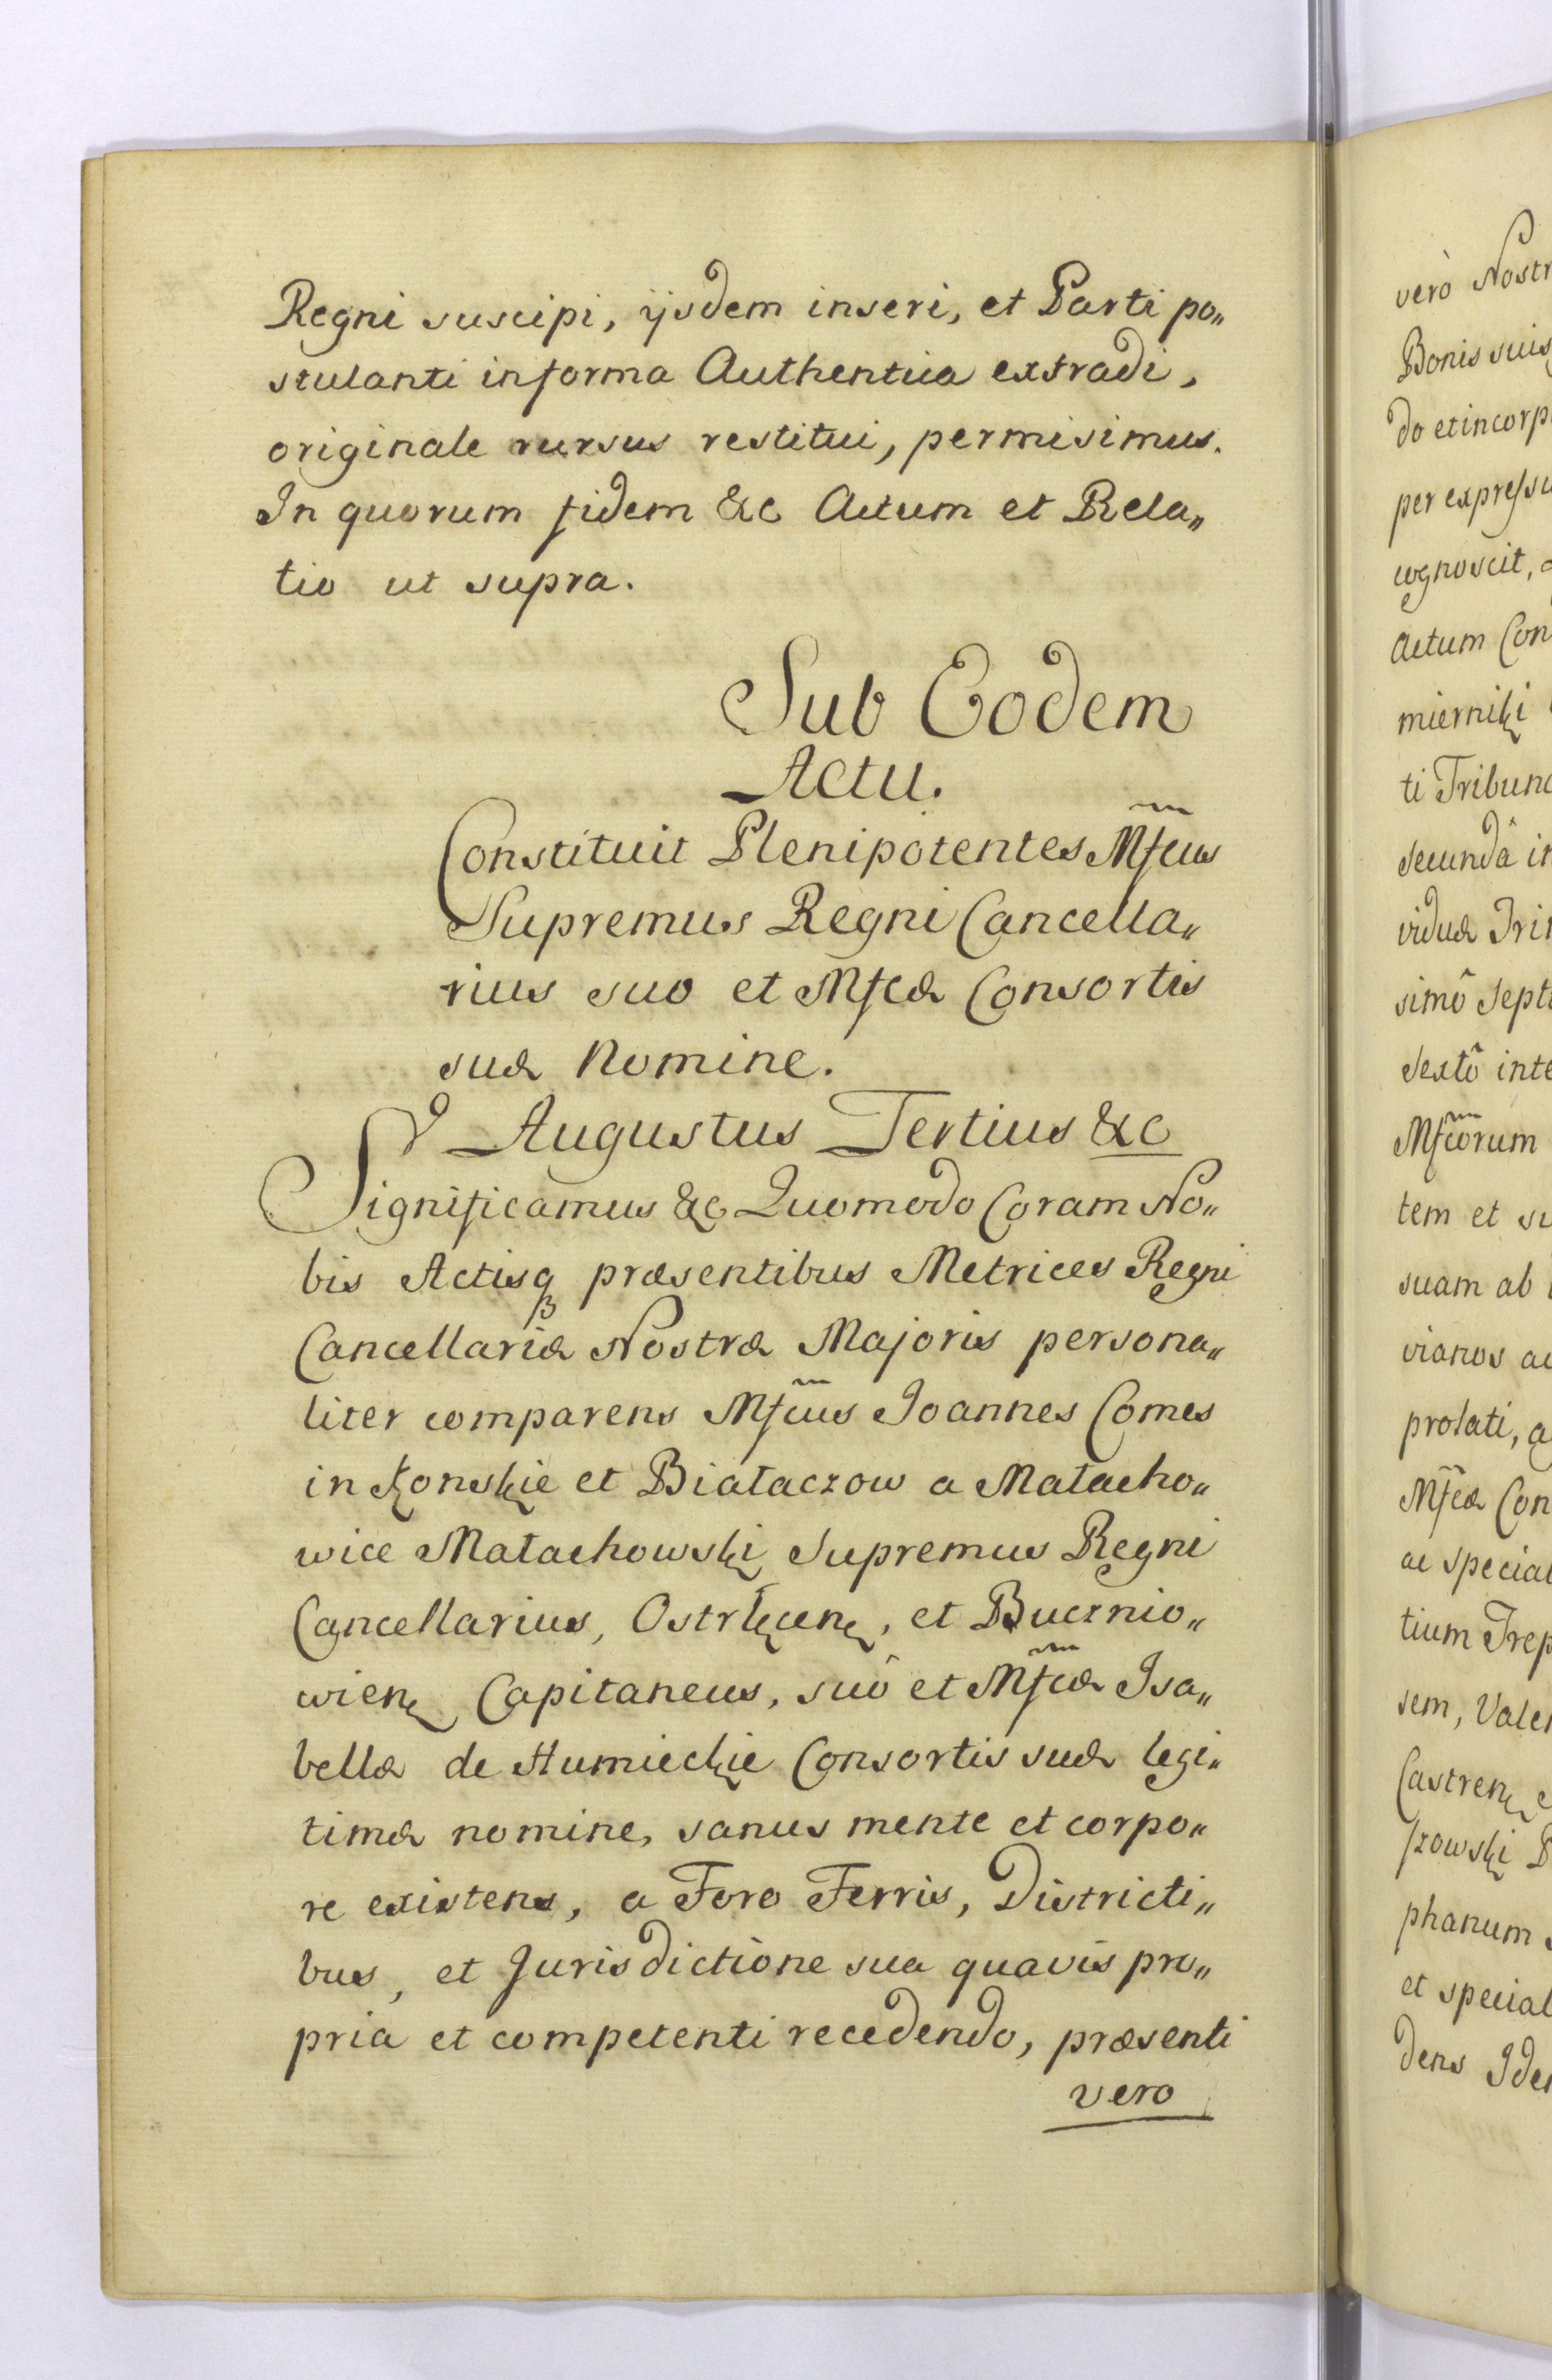 Regni suscipi, ijsdem inseri, et Parti po„
stulanti in forma Authentica extradi,
originale rursus restitui, permisimus.
In quorum fidem &c Actum et Rela„
tio ut supra.
Sub Eodem
Actu.
Constituit Plenipotentes Mfcus
Supremus Regni Cancella„
rius suo et Mfcæ Consortis
suæ Nomine.
Augustus Tertius &c
Significamus &c Quomodo Coram No„
bis Actisq præsentibus Metrices Regni
Cancellariæ Nostræ Majoris persona„
liter comparens Mfcus Joannes Comes
in Konskie et Białaczow a Małacho„
wice Małachowski Supremus Regni
Cancellarius, et Bucznio„
wien Capitaneus, suô et Mfcæ Isa„
bellæ de Humieckie Consortis suæ legi„
timæ nomine, sanus mente et corpo„
re existens, a Foro Terris, Districti„
bus, et Jurisdictione sua quavis pro„
pria et competenti recedendo, præsenti
vero
verò Nostr
Bonis suis
do et incorp
per expressu
cognoscit,
Actum Con
mierniki
ti Tribuna
secundâ in
viduæ Tri
simô Sept
Sextô inte
Mfcorum
tem et su
suam ab
vianos ac
prolati, a
Mfcæ Con
ac special
tium Trep
sem, Vale
Castren
szowski
phanum
et special
dens Iden